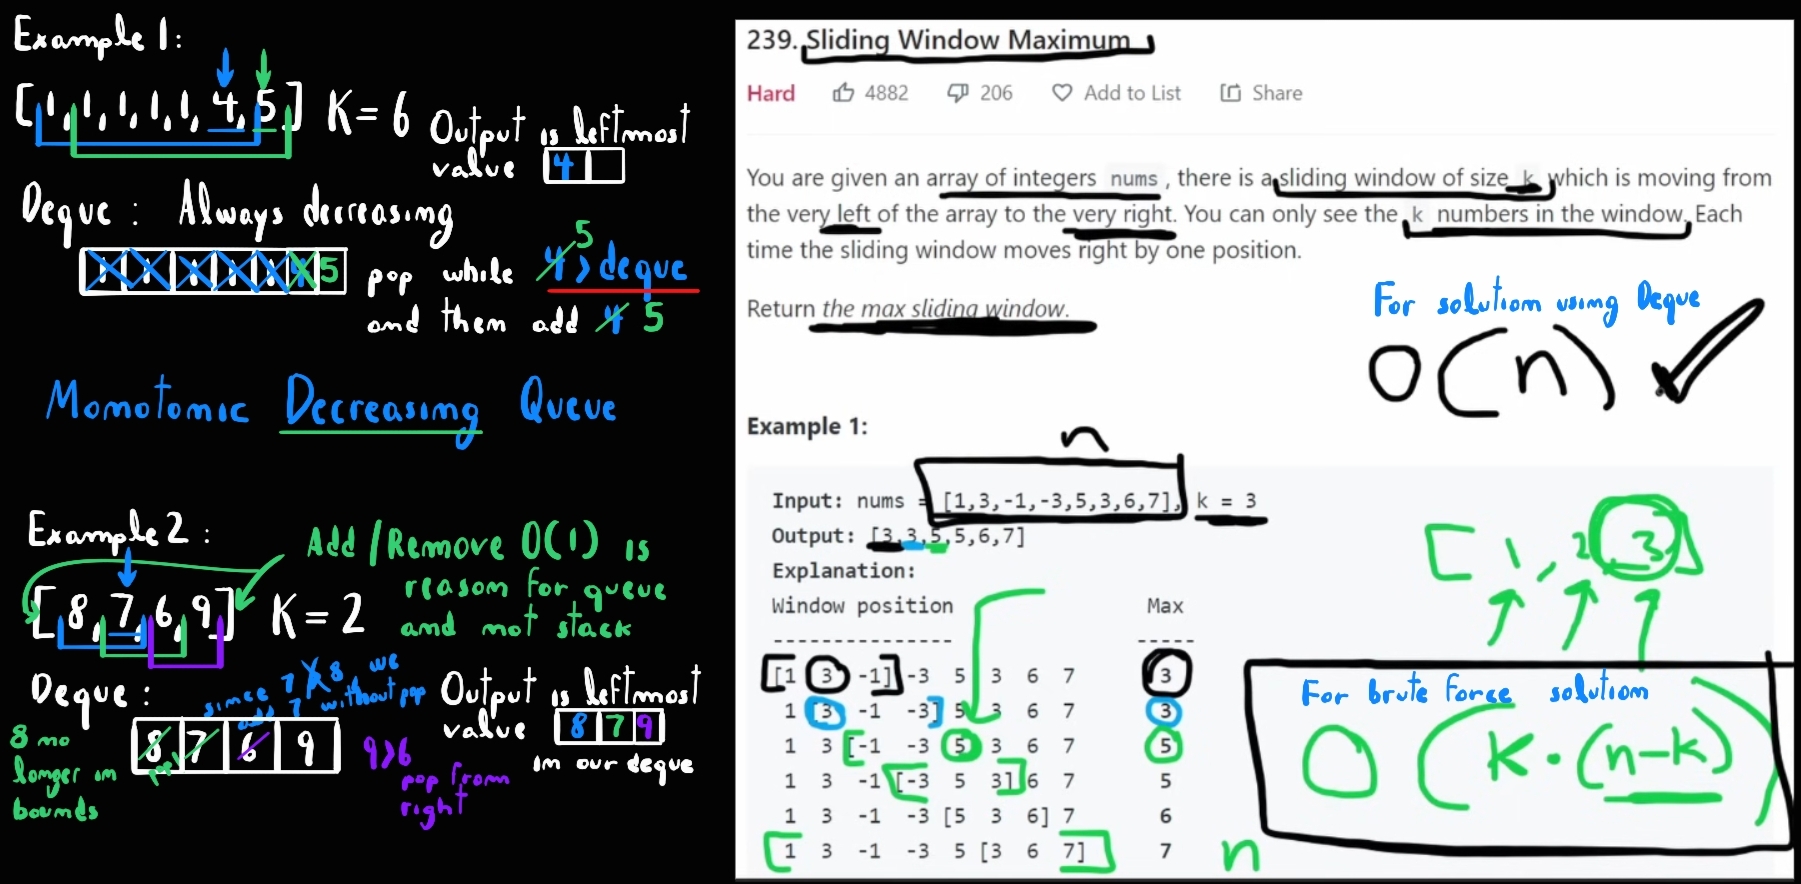 Example 1:
[1,1,1,1,1,4,5] K=6
Output is leftmost
value 4
Deque: Always decreasing
1 1 1 1 1 4 5
pop while 4 5 > deque
and then add 4 5
Monotonic Decreasing Queue
Example 2:
Add/Remove O(1) is
reason for queue
and not stack
[8,7,6,9] K=2
Deque:
since 7 > 8 we
add 7 without pop
8 7 6 9
8 no
longer in
bounds
9>6
pop from
right
Output is leftmost
value 8 7 9
in our deque
239. Sliding Window Maximum
Hard 4882 206 Add to List Share
You are given an array of integers nums, there is a sliding window of size k which is moving from
the very left of the array to the very right. You can only see the k numbers in the window. Each
time the sliding window moves right by one position.
Return the max sliding window.
For solution using Deque
O(n)
Example 1:
n
Input: nums = [1,3,-1,-3,5,3,6,7], k = 3
Output: [3,3,5,5,6,7]
Explanation:
Window position Max
--------------- -----
[1 3 -1] -3 5 3 6 7 3
1 [3 -1 -3] 5 3 6 7 3
1 3 [-1 -3 5] 3 6 7 5
1 3 -1 [-3 5 3] 6 7 5
1 3 -1 -3 [5 3 6] 7 6
1 3 -1 -3 5 [3 6 7] 7
n
[1,2,3]
For brute force solution
O(K·(n-k))